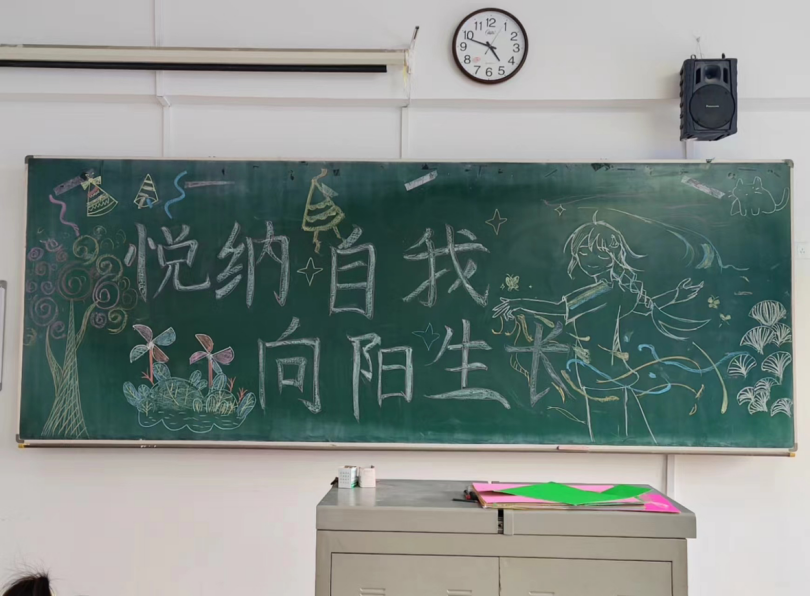 12
11 1
10 2
9 3
8 4
7 6 5
悦纳自我
向阳生长